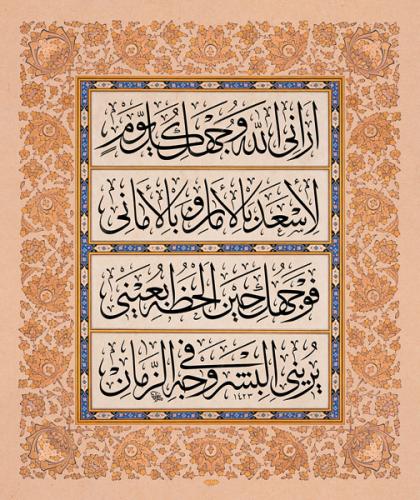 أراني الله وجهك كل يوم
لأسعد بالأمان وبالأماني
فوجهك حين ألحظه بعيني
يريني البشر في وجه الزمان
١٤٢٣